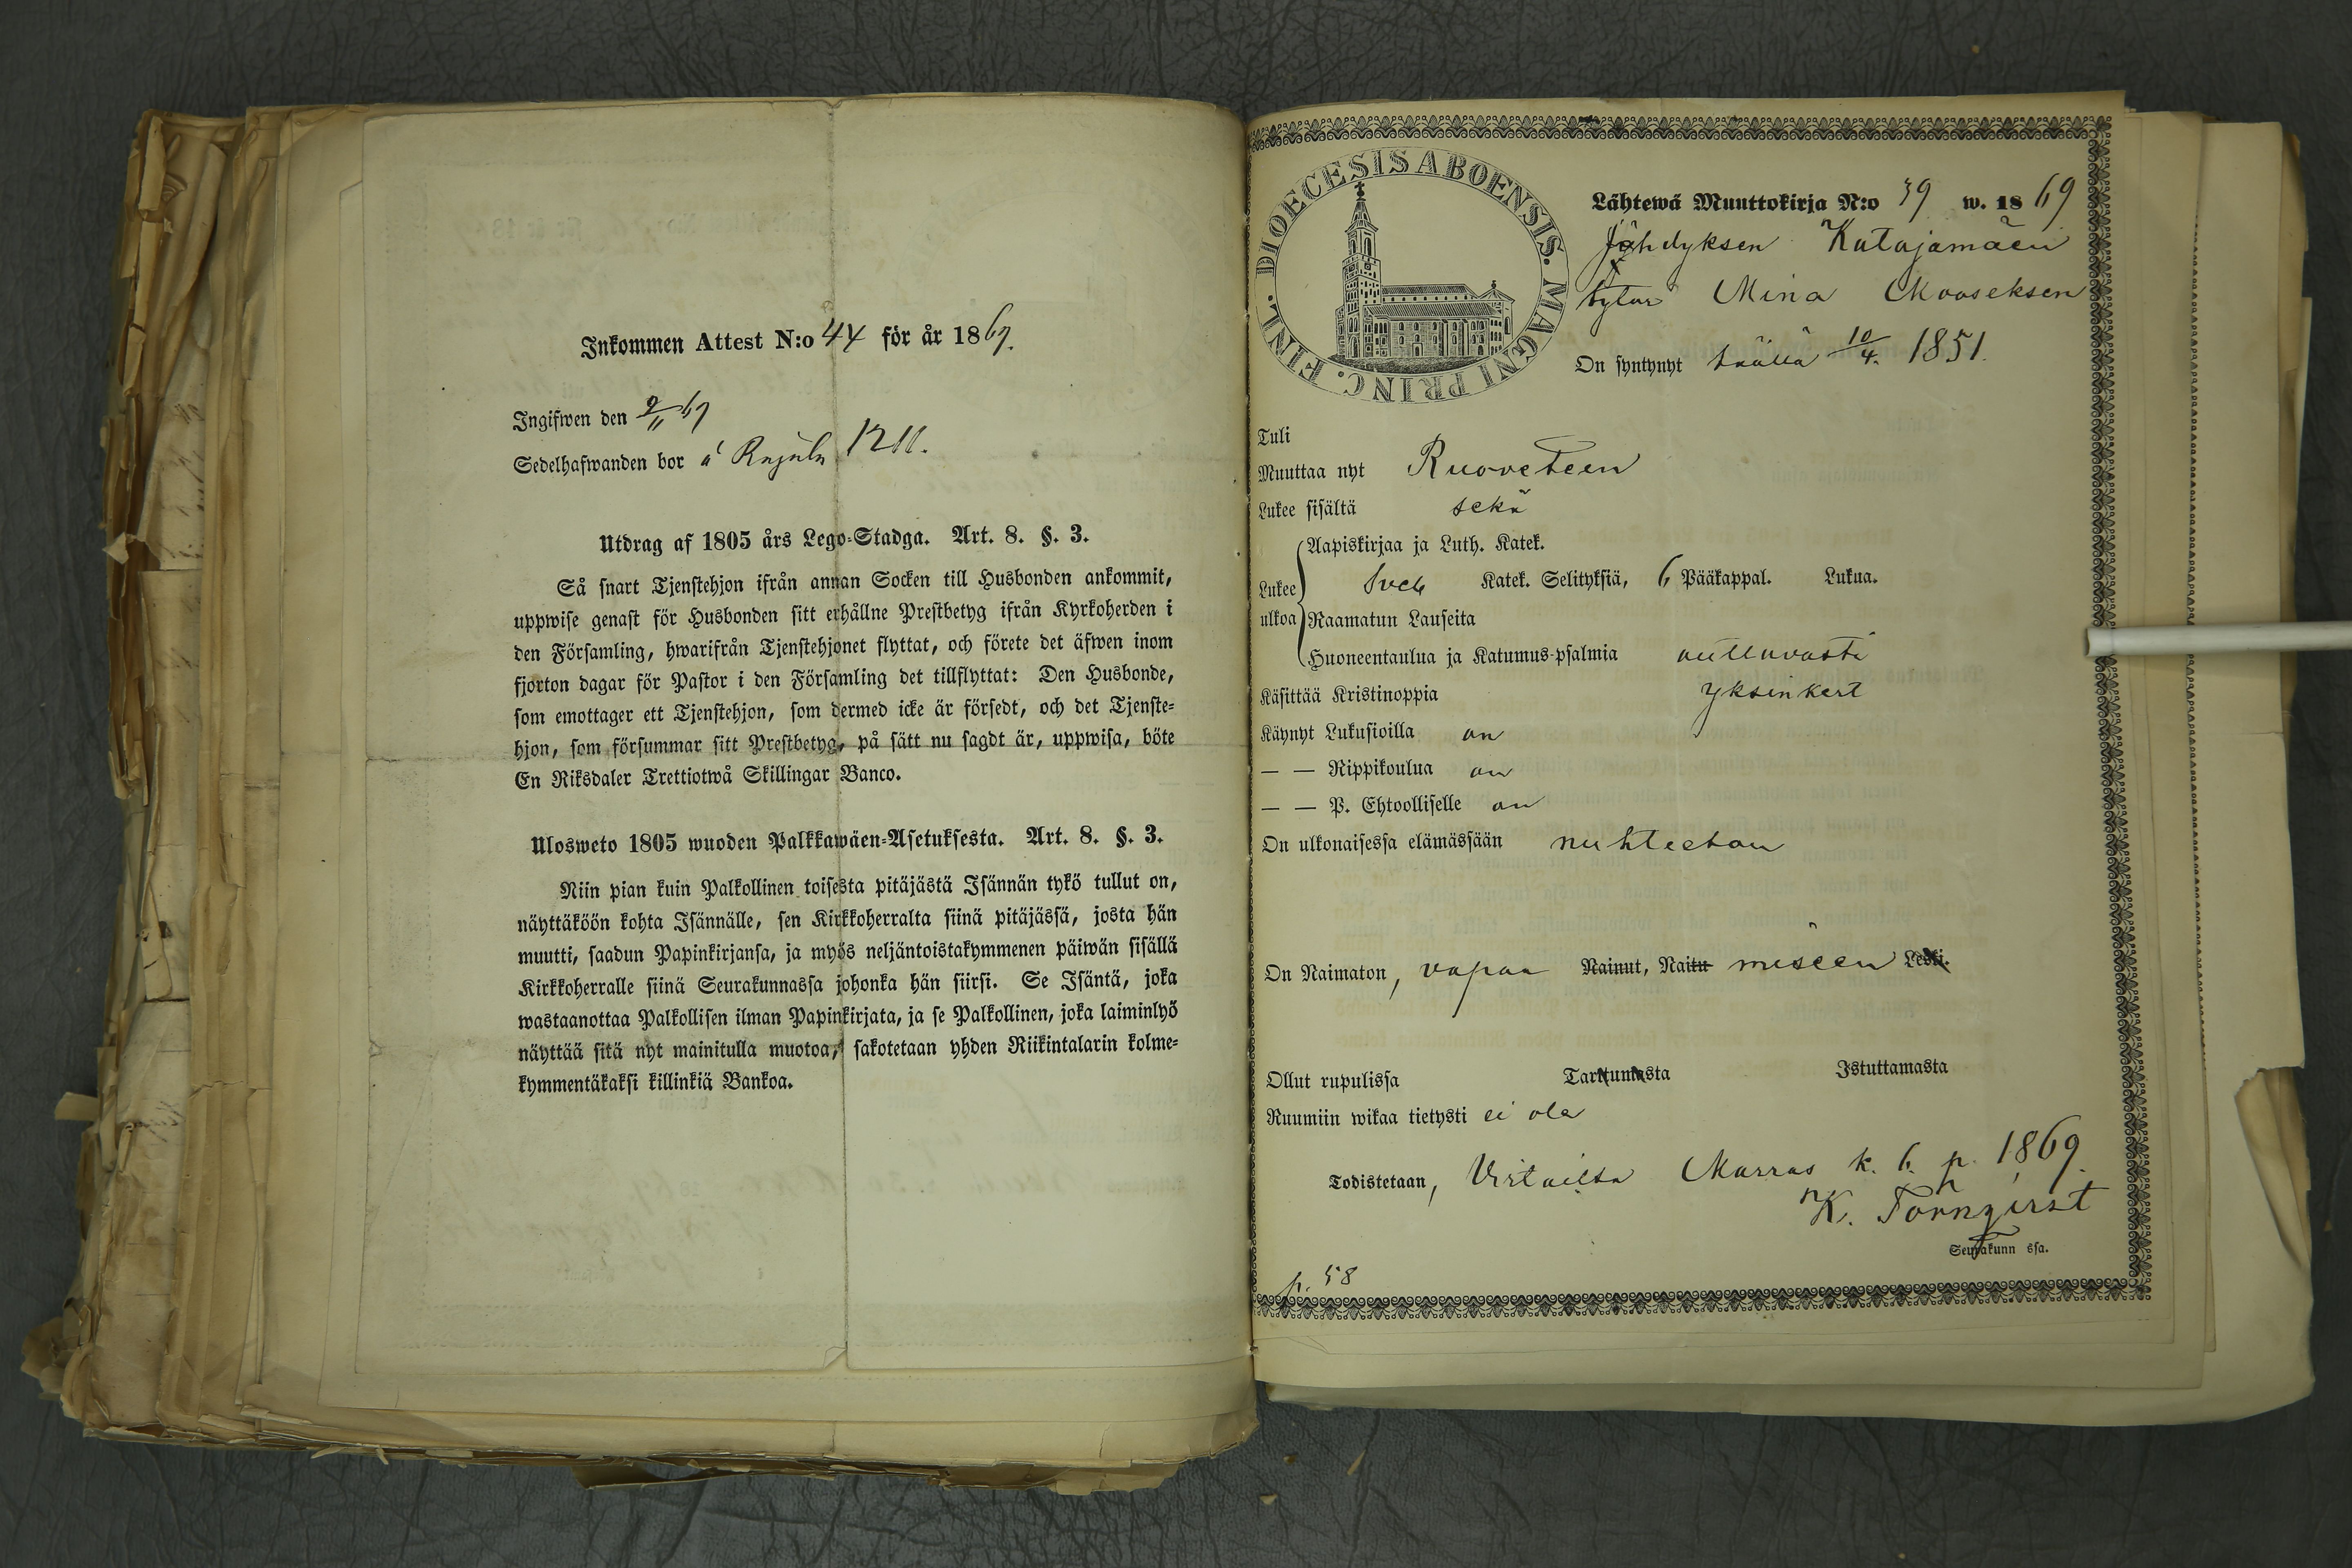 Inkommen Attest N:o 44 för år 1869.
Ingifwen den 9/11 69
Sedelhafwanden bor å 1211.
Utdrag af 1805 års Lego-Stadga. Art. 8. §. 3.
Så snart Tjenstehjon ifrån annan Socken till Husbonden ankommit,
uppwise genast för Husbonden sitt erhållne Prestbetyg ifrån Kyrkoherden i
den Församling, hwarifrån Tjenstehjonet flyttat, och förete det äfwen inom
fjorton dagar för Pastor i den Församling det tillflyttat: Den Husbonde,
som emottager ett Tjenstehjon, som dermed icke är försedt, och det Tjenste-
hjon, som försummar sitt Prestbetyg, på sätt nu sagdt är, uppwisa, böte
En Riksdaler Trettiotwå Skillingar Banco.
Ulosweto 1805 wuoden Palkkawäen-Asetuksesta. Art. 8. §. 3.
Niin pian kuin Palkollinen toisesta pitäjästä Isännän tykö tullut on,
näyttäköön kohta Isännälle, sen Kirkkoherralta siinä pitäjässä, josta hän
muutti, saadun Papinkirjansa, ja myös neljäntoistakymmenen päiwän sisällä
Kirkkoherralle siinä Seurakunnassa johonka hän siirsi. Se Isäntä, joka
wastaanottaa Palkollisen ilman Papinkirjata, ja se Palkollinen, joka laiminlyö
näyttää sitä nyt mainitulla muotoa, sakotetaan yhden Riikintalarin kolme-
kymmentäkaksi killinkiä Bankoa.
DIOECESIS ABOENSIS. MAGNI PRINC. FINL.
Lähtewä Muuttokirja N:o 39 w. 1869
Katajamäen
tytär Mina Mooseksen
On syntynyt täällä 10/4. 1851.
Tuli
Muuttaa nyt Ruoveteen
Lukee sisältä sekä
Lukee ulkoa
Aapiskirjaa ja Luth. Katek.
Sveb Katek. Selityksiä, 6 Pääkappal. Lukua.
Raamatun Lauseita
Huoneentaulua ja Katumus-psalmia auttavasti
Käsittää Kristinoppia yksinkert
Käynyt Lukusioilla on
— — Rippikoulua on
— — P. Ehtoolliselle on
On ulkonaisessa elämässään nuhteeton
On Naimaton, vapaa Nainut, Naitu miseen Leski.
Ollut rupulissa Tarttumasta Istuttamasta
Ruumiin wikaa tietysti ei ole
Todistetaan, Virtailta Marras k. 6. p. 1869.
K. Törnqvist
Seurakunn ssa.
p. 58